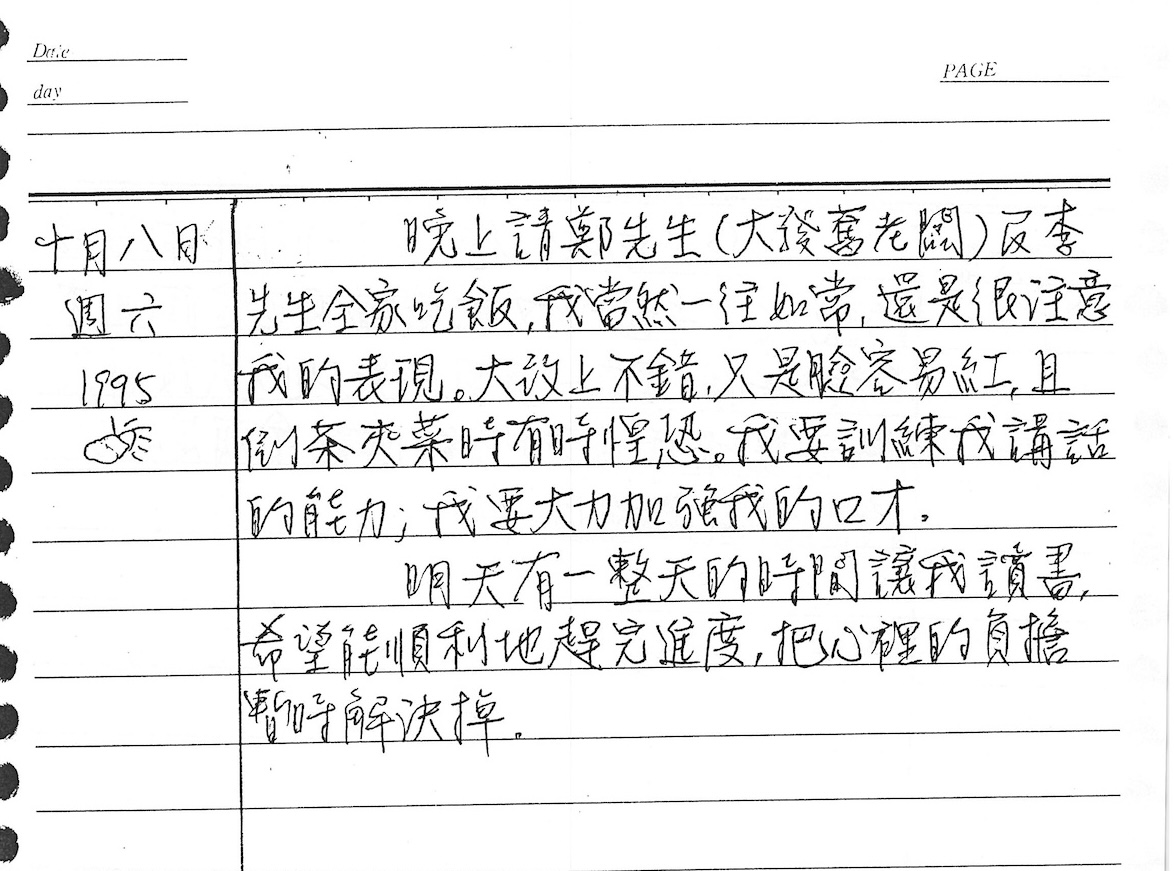 Date
day
PAGE
十月八日
週六
1995
晚上請鄭先生(大發舊老闆)及李
先生全家吃飯,我當然一往如常,還是很注意
我的表現。大致上不錯,只是臉容易紅,且
倒茶夾菜時有時惶恐。我要訓練我講話
的能力;我要大力加強我的口才。
明天有一整天的時間讓我讀書,
希望能順利地趕完進度,把心裡的負擔
暫時解決掉。